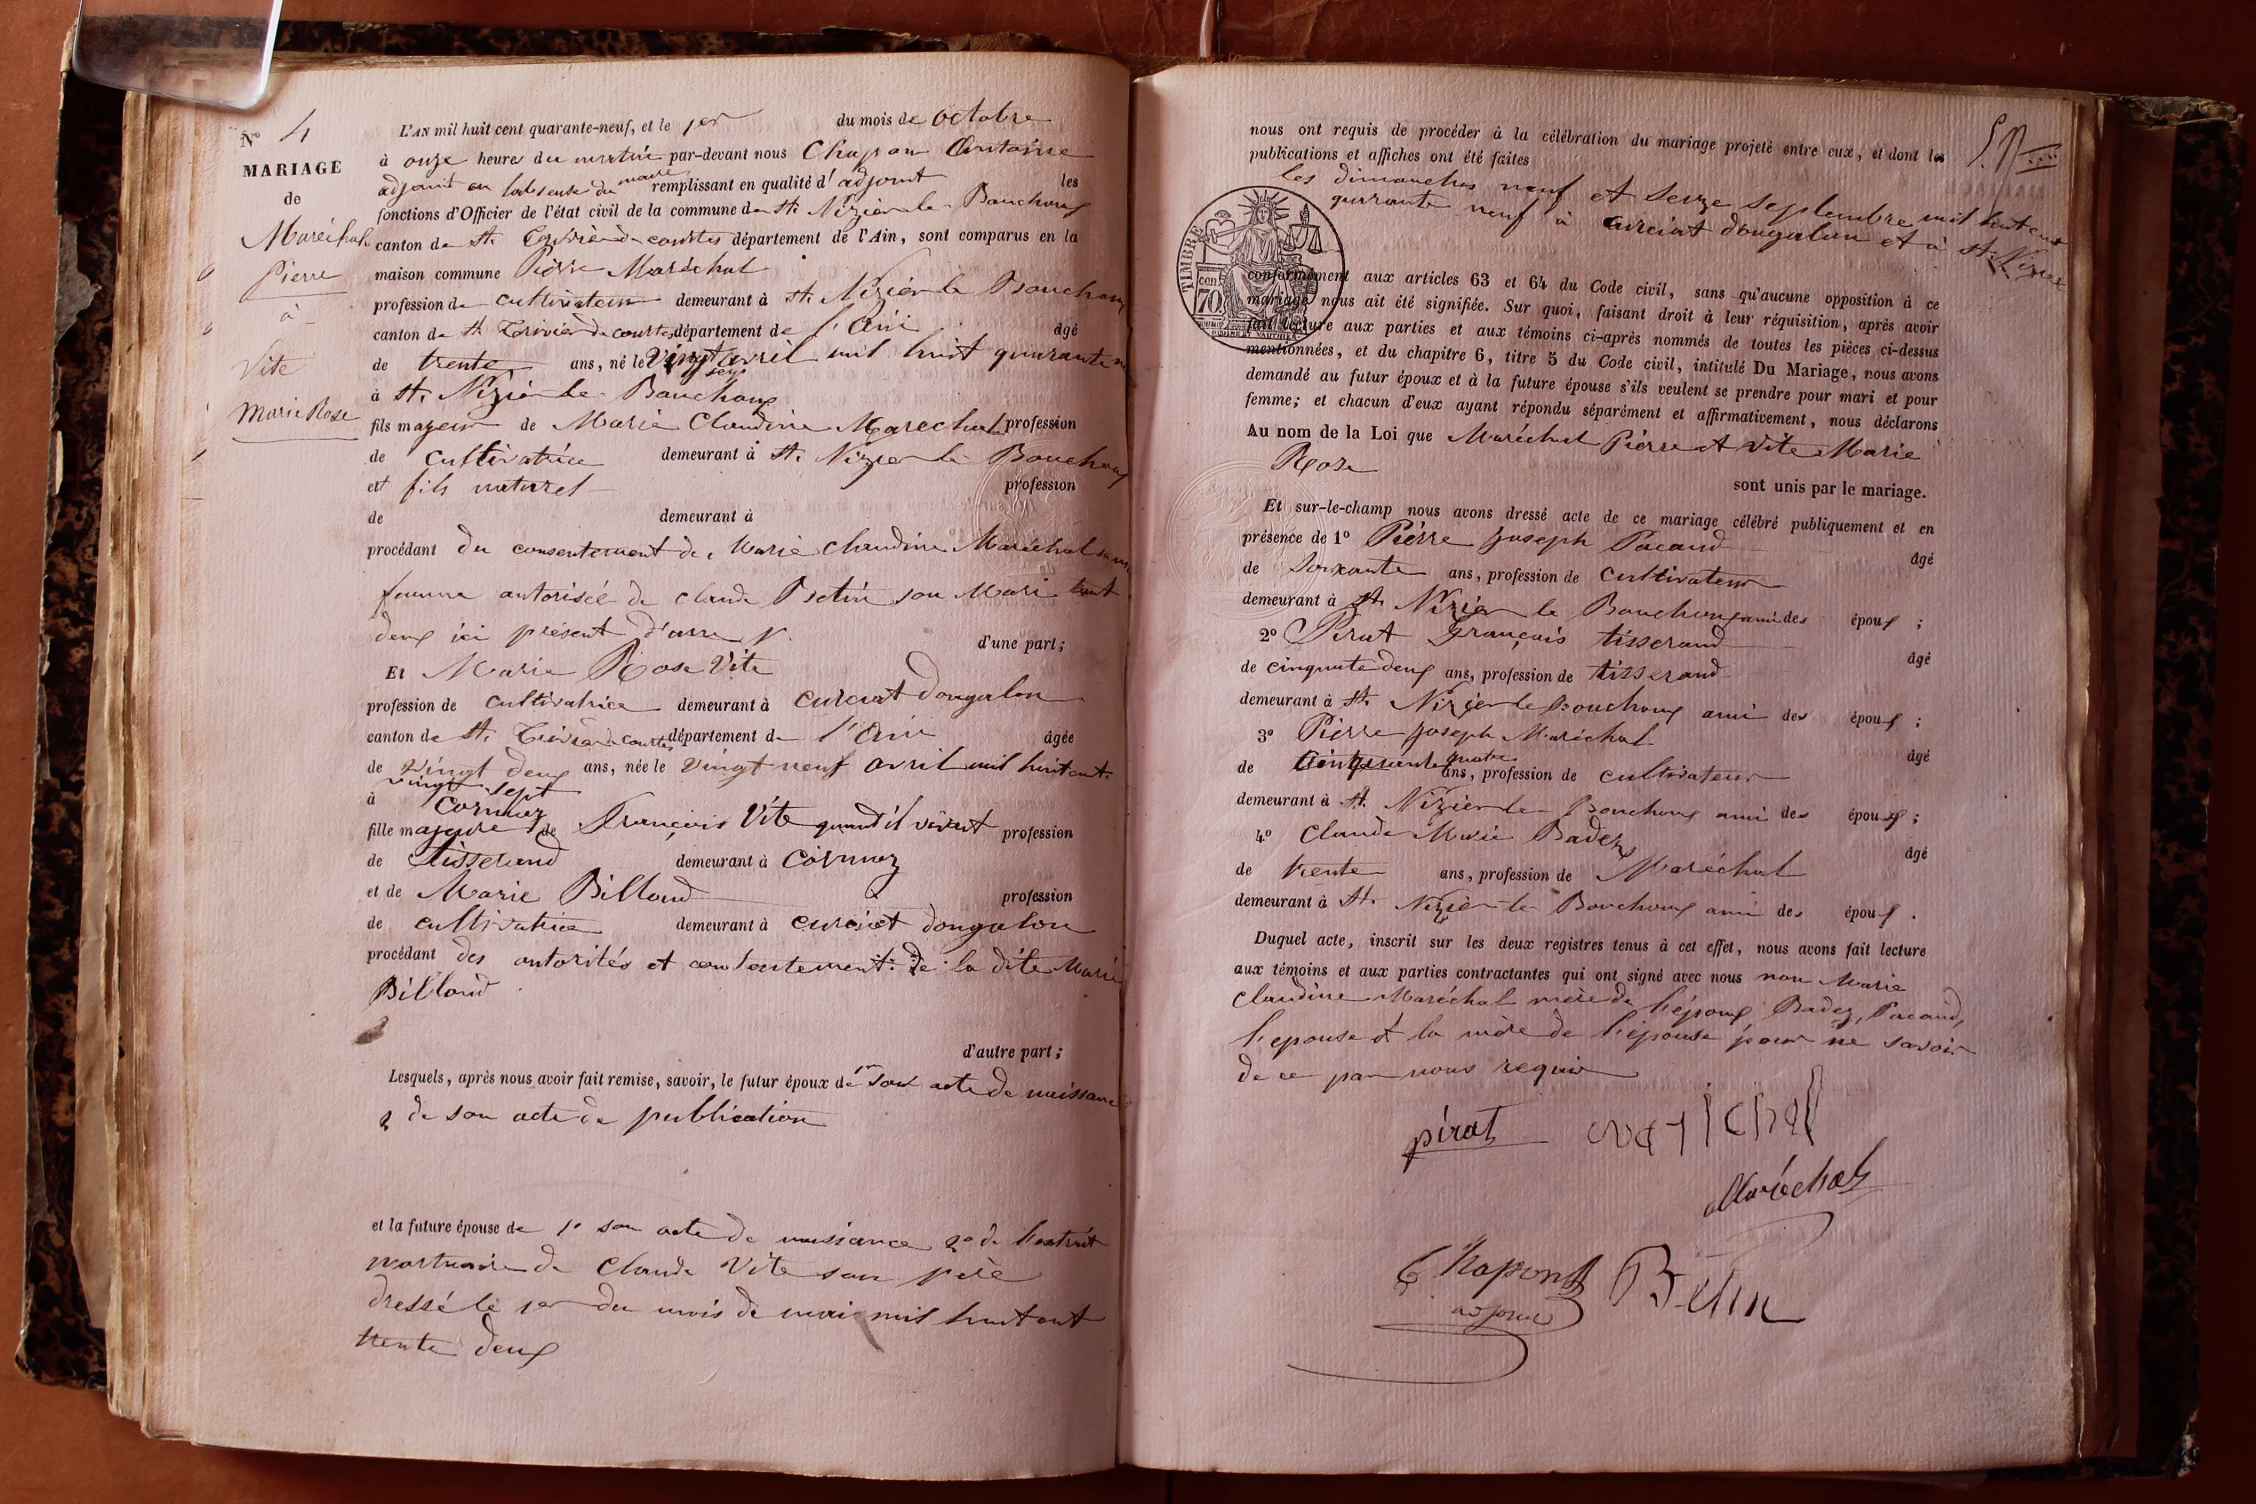 N° 4
MARIAGE
de
Maréchal
Pierre
à
Vite
Marie Rose
L'AN mil huit cent quarante-neuf, et le 1er du mois de octobre
à onze heures du matin par-devant nous Chapon Antoine
adjoint en l'absence du maire remplissant en qualité d'adjoint les
fonctions d'Officier de l'état civil de la commune de St. Nizier le Bouchoux
canton de St. Trivier de courtes département de l'Ain, sont comparus en la
maison commune Pierre Maréchal
profession de cultivateur demeurant à St. Nizier le Bouchoux
canton de St Trivier de courtes département de l'Ain âgé
de trente ans, né le vingt avril mil huit quarante
à St. Nizier le Bouchoux
fils majeur de Marie Claudine Marechal profession
de cultivatrice demeurant à St. Nizier le Bouchoux
et fils naturel profession
de demeurant à
procédant du consentement de Marie Claudine Maréchal
femme autorisée de Claude Betin son Mari tout
deux ici présent d'une part;
Et Marie Rose Vite
profession de cultivatrice demeurant à curciat dongalon
canton de St. Trivier de courtes département de l'Ain âgée
de vingt deux ans, née le vingt neuf avril mil huit cent
vingt sept
à cormoz
fille majeure de François Vite quand il vivait profession
de tisserand demeurant à cormoz
et de Marie Billoud profession
de cultivatrice demeurant à curciat dongalon
procédant des autorités et consentement de la dite Marie
Billoud
d'autre part;
Lesquels, après nous avoir fait remise, savoir, le futur époux de 1° son acte de naissance
2 de son acte de publication
et la future épouse de 1° son acte de naissance 2° de l'extrait
mortuaire de Claude Vite son père
dressé le 1er du mois de mai mil huit cent
trente deux
nous ont requis de procéder à la célébration du mariage projeté entre eux, et dont les
publications et affiches ont été faites
les dimanches neuf et seize septembre mil huit cent
quarante neuf à curciat dongalon et à St. Nizier
TIMBRE
70
conformément aux articles 63 et 64 du Code civil, sans qu'aucune opposition à ce
mariage nous ait été signifiée. Sur quoi, faisant droit à leur réquisition, après avoir
fait lecture aux parties et aux témoins ci-après nommés de toutes les pièces ci-dessus
mentionnées, et du chapitre 6, titre 5 du Code civil, intitulé Du Mariage, nous avons
demandé au futur époux et à la future épouse s'ils veulent se prendre pour mari et pour
femme; et chacun d'eux ayant répondu séparément et affirmativement, nous déclarons
Au nom de la Loi que Maréchal Pierre et Vite Marie
Rose
sont unis par le mariage.
Et sur-le-champ nous avons dressé acte de ce mariage célébré publiquement et en
présence de 1° Pierre Joseph Pacaud âgé
de soixante ans, profession de cultivateur
demeurant à St. Nizier le Bouchoux ami des époux;
2° Pirat François tisserand âgé
de cinquante deux ans, profession de tisserand
demeurant à St. Nizier le Bouchoux ami des époux;
3° Pierre Joseph Maréchal âgé
de Cinquante quatre ans, profession de cultivateur
demeurant à St. Nizier le Bouchoux ami des époux;
4° Claude Marie Badez âgé
de trente ans, profession de Maréchal
demeurant à St. Nizier le Bouchoux ami des époux.
Duquel acte, inscrit sur les deux registres tenus à cet effet, nous avons fait lecture
aux témoins et aux parties contractantes qui ont signé avec nous non Marie
Claudine Maréchal mère de l'époux Badez, Pacaud,
l'epouse et la mère de l'épouse pour ne savoir
de ce par nous requis
pirat Marechal
Maréchal
Chapon Betin
adjoint